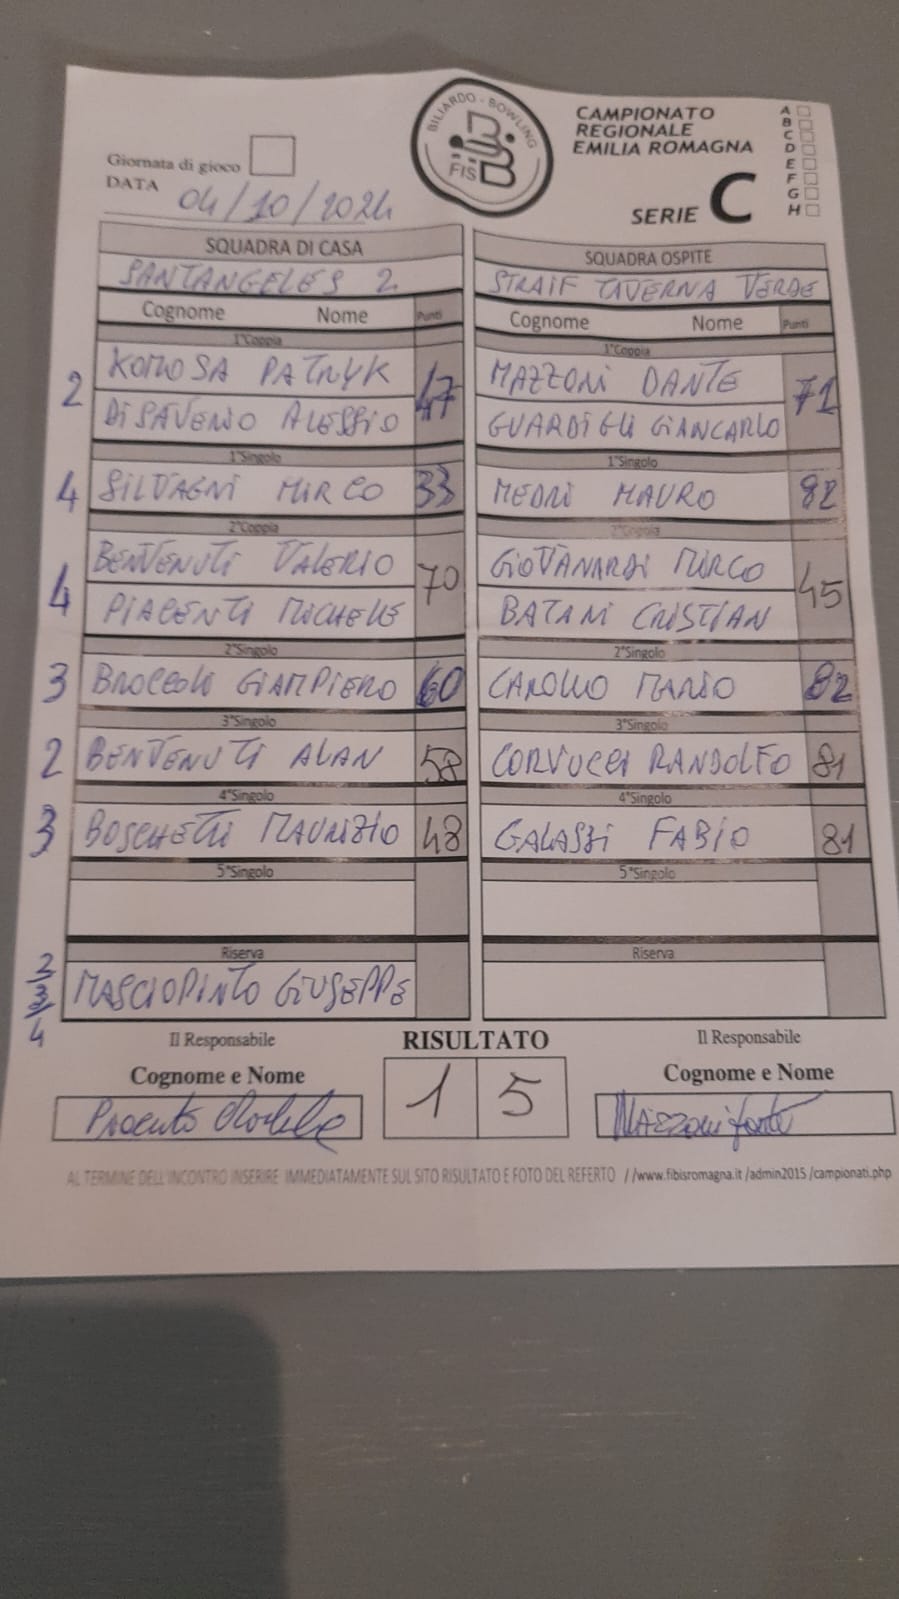 BILIARDO - BOWLING
FIS
CAMPIONATO
REGIONALE
EMILIA ROMAGNA
SERIE C
A
B
C
D
E
F
G
H
Giornata di gioco
DATA 04/10/2024
SQUADRA DI CASA
SANTANGELES 2
Cognome Nome Punti
1°Coppia
2 KOMOSA PATRYK 47
DISAVERIO ALESSIO
1°Singolo
4 SILVAGNI MIRCO 33
2°Coppia
4 BENVENUTI VALERIO 70
PIACENTI MICHELE
2°Singolo
3 BROCCOLI GIAMPIERO 60
3°Singolo
2 BENVENUTI ALAN 58
4°Singolo
3 BOSCHETTI MAURIZIO 48
5°Singolo
Riserva
2/3/4 MASCIOPINTO GIUSEPPE
SQUADRA OSPITE
STRAIF TAVERNA VERDE
Cognome Nome Punti
1°Coppia
MAZZONI DANTE 71
GUARDIGLI GIANCARLO
1°Singolo
MEDRI MAURO 82
2°Coppia
GIOVANARDI MIRCO 45
BATANI CRISTIAN
2°Singolo
CAROLLO MARIO 82
3°Singolo
CORVUCCI RANDOLFO 81
4°Singolo
GALASSI FABIO 81
5°Singolo
Riserva
Il Responsabile
Cognome e Nome
RISULTATO
1 5
Il Responsabile
Cognome e Nome
AL TERMINE DELL'INCONTRO INSERIRE IMMEDIATAMENTE SUL SITO RISULTATO E FOTO DEL REFERTO //www.fibisromagna.it /admin2015 /campionati.php